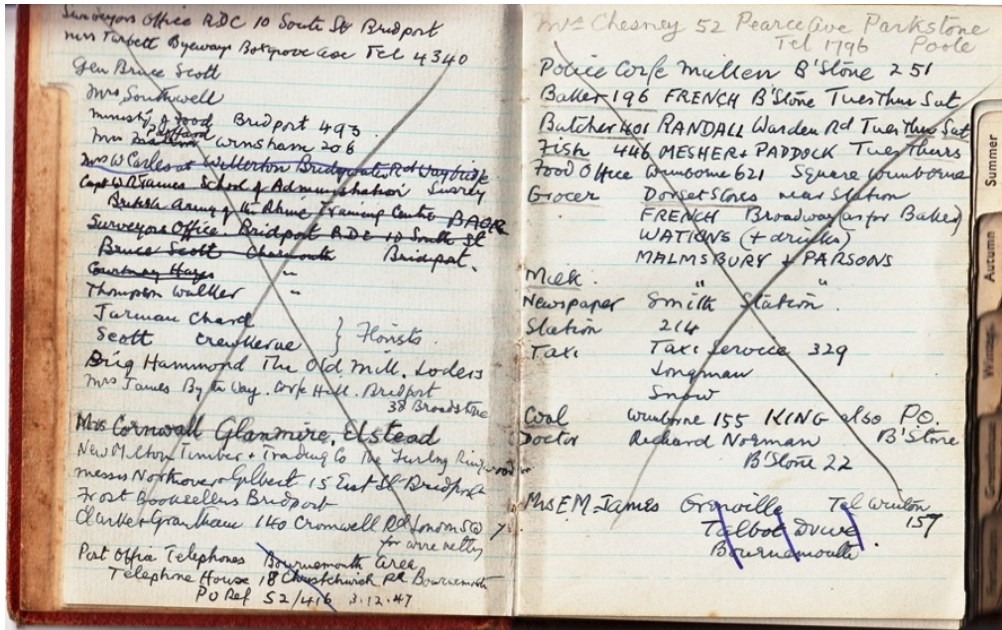 Surveyors Office RDC 10 South St Bridport
Miss Turbett Byeways Boxgrove Ave Tel 4340
Gen Bruce Scott
Mrs Southwell
Ministry of Food Bridport 493
Mrs Winsham 206
Mrs W Carles at Wellerton Bridgwater Rd Waybridge
Capt W R James School of Administration Surrey
British Army of the Rhine Training Centre BAOR
Surveyors Office. Bridport RDC 10 South St
Bruce Scott Charmouth Bridport.
Courtnay Hayes "
Thompson Walker "
Jarman Chard
Scott Crewkerne } Florists.
Brig Hammond The Old Mill. Loders
Mrs James By the Way. Corfe Hill. Bridport
38 Broadstone
Mrs Cornwall Glanmire, Elstead
New Milton Timber & Trading Co The Ringwood
Messrs Northover & Gilbert 15 East St Bridport
Frost Booksellers Bridport
Clarke & Grantham 140 Cromwell Rd London SW7
for wire netting
Post Office Telephones Bournemouth Area
Telephone House 18 Christchurch Rd Bournemouth
PO Ref S2/416 3.12.47
Mrs Chesney 52 Pearce Ave Parkstone
Tel 1796 Poole
Police Corfe Mullen B'Stone 251
Baker 196 FRENCH B'Stone Tues Thur Sat
Butcher 401 RANDALL Warden Rd Tues Thur Sat
Fish 446 MESHER & PADDOCK Tues Thurs
Food Office Wimborne 621 Square Wimborne
Grocer Dorset Stores near Station
FRENCH Broadway (as for Baker)
WATIONS (+ drinks)
MALMSBURY & PARSONS
Milk. " "
Newspaper Smith Station.
Station 214
Taxi Taxi Service 329
Longman
Snow
Coal Wimborne 155 KING also PO
Doctor Richard Norman B'Stone
B'Stone 22
Mrs E.M. James Grenville Tel Winton
157
Talbot Drive
Bournemouth.